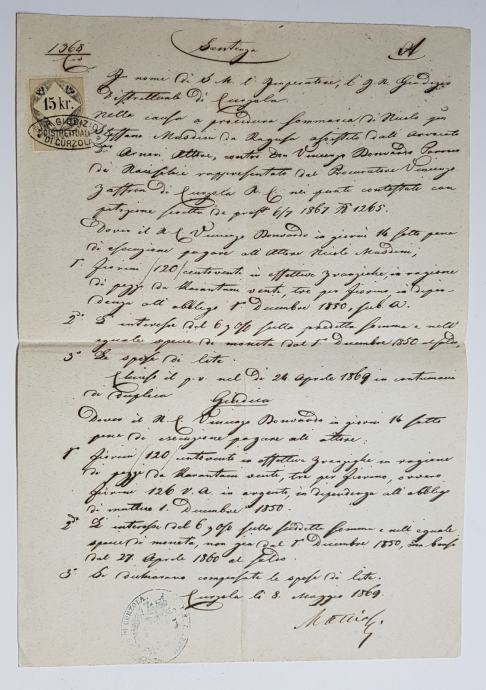 1368
Sentenza
A
15 kr.
I. R. GIUDIZIO
DISTRETTUALE
DI CURZOLA
In nome di S. M. l'Imperatore, l'I. R. Giudizio
Distrettuale di Curzola
Nella causa a procedura sommaria di Nicolò
Stefano da Ragusa assistito dall'Avvocato
Attore, contro Don Vincenzo Bonvardo Parroco
di rappresentato dal Procuratore Vincenzo
Zaffron di Curzola R. C. nei punti contestati con
petizione 6/7 1867 N 1265.
Dover il R. C. Vincenzo Bonvardo in giorni 14 sotto pena
di esecuzione pagare all'Attore Nicolò
1° fiorini /120/ centoventi in effettive Zvanziche in ragione
di pezzi da Karantani venti, tre per fiorino in dipen-
denza all'obbligo 1° Decembre 1850, sub A.
2° L'interesse del 6 % sulla predetta somma e nell'
eguale specie di moneta dal 1° Decembre 1850 al saldo,
3° Le spese di lite.
Chiuso il p. v. nel dì 24 Aprile 1869 in
di duplica
Giudica
Dover il R. C. Vincenzo Bonvardo in giorni 14 sotto
pena di esecuzione pagare all'attore:
1° fiorini /120/ centovento in effettive Zvanziche in ragione
di pezzi da Karantani venti, tre per fiorino, ovvero
fiorini 126 V. A. in argento, in dipendenza all'obbligo
di mutuo 1. Decembre 1850.
2° L'interesse del 6 % sulla suddetta somma e nell'eguale
specie di moneta, non già dal 1° Decembre 1850, ma bensì
dal 27 Aprile 1860 al saldo.
3° Si dichiarano compensate le spese di lite.
Curzola li 8. Maggio 1869.